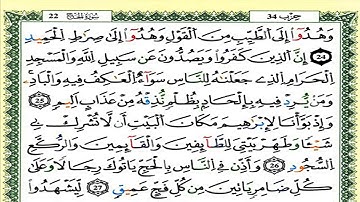 22 سُورَةُ الْحَجِّ حِزْب 34
وَهُدُوٓاْ إِلَى اَلطَّيِّبِ مِنَ اَلْقَوْلِ وَهُدُوٓاْ إِلَىٰ صِرَٰطِ اِلْحَمِيدِ
24 إِنَّ اَلذِينَ كَفَرُواْ وَيَصُدُّونَ عَن سَبِيلِ اِللَّهِ وَالْمَسْجِدِ
اِلْحَرَامِ اِلذِے جَعَلْنَٰهُ لِلنَّاسِ سَوَآءٌ اِلْعَٰكِفُ فِيهِ وَالْبَادِۦ
وَمَنْ يُّرِدْ فِيهِ بِإِلْحَادٖ بِظُلْمٖ نُّذِقْهُ مِنْ عَذَابٍ اَلِيمٖ 25
وَإِذْ بَوَّأْنَا لِإِبْرَٰهِيمَ مَكَانَ اَلْبَيْتِ أَن لَّا تُشْرِكْ بِے
شَيْـٔاٗ وَطَهِّرْ بَيْتِيَ لِلطَّآئِفِينَ وَالْقَآئِمِينَ وَالرُّكَّعِ
اِلسُّجُودِ 26 وَأَذِّن فِے اِلنَّاسِ بِالْحَجِّ يَاتُوكَ رِجَالاٗ وَعَلَىٰ
كُلِّ ضَامِرٖ يَاتِينَ مِن كُلِّ فَجٍّ عَمِيقٖ 27 لِّيَشْهَدُواْ